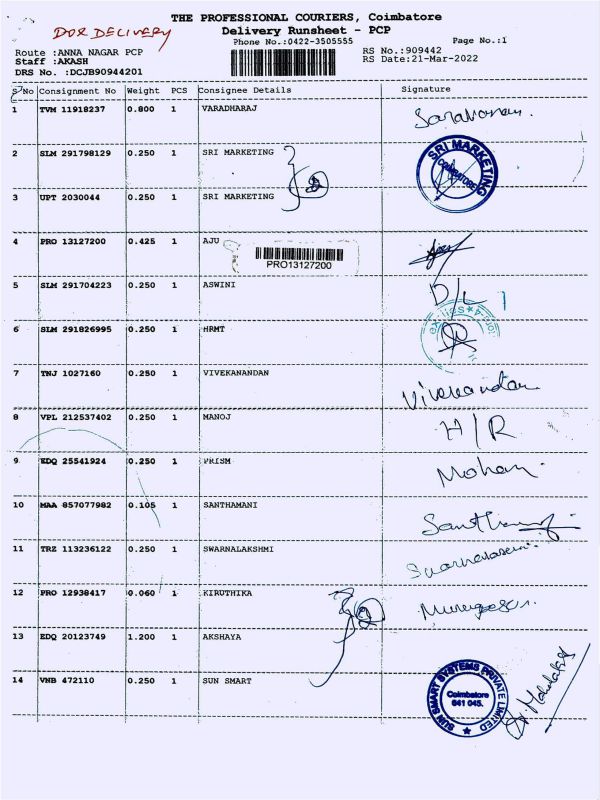 THE PROFESSIONAL COURIERS, Coimbatore
DOR DELIVERY
Delivery Runsheet - PCP
Phone No.:0422-3505555
Page No.:1
Route :ANNA NAGAR PCP
RS No.:909442
Staff :AKASH
RS Date:21-Mar-2022
DRS No. :DCJB90944201
S No Consignment No Weight PCS Consignee Details Signature
1 TVM 11918237 0.800 1 VARADHARAJ Saravanan.
2 SLM 291798129 0.250 1 SRI MARKETING
SRI MARKETING
COIMBATORE
3 UPT 2030044 0.250 1 SRI MARKETING 2
4 PRO 13127200 0.425 1 AJU
PRO13127200
5 SLM 291704223 0.250 1 ASWINI D/L
6 SLM 291826995 0.250 1 HRMT
7 TNJ 1027160 0.250 1 VIVEKANANDAN Vivekanandan
8 VPL 212537402 0.250 1 MANOJ H/R
9 EDQ 25541924 0.250 1 PRISM Mohan
10 MAA 857077982 0.105 1 SANTHAMANI
11 TRZ 113236122 0.250 1 SWARNALAKSHMI
12 PRO 12938417 0.060 1 KIRUTHIKA Murugesan.
2
13 EDQ 20123749 1.200 1 AKSHAYA
14 VNB 472110 0.250 1 SUN SMART
SUN SMART SYSTEMS PRIVATE LIMITED
Coimbatore
641 045.